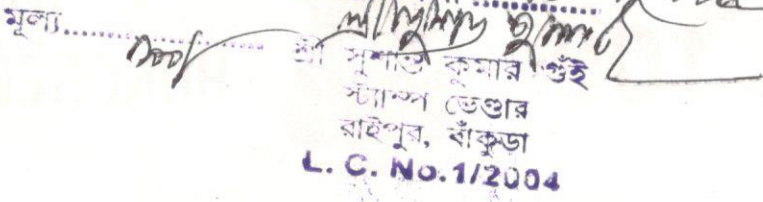 মূল্য....................
শ্রী সুশান্ত কুমার গুঁই
স্ট্যাম্প ভেণ্ডার
রাইপুর, বাঁকুড়া
L. C. No. 1/2004